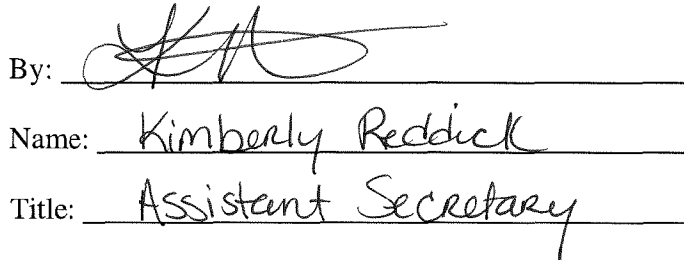 By:
Name: Kimberly Reddick
Title: Assistant Secretary